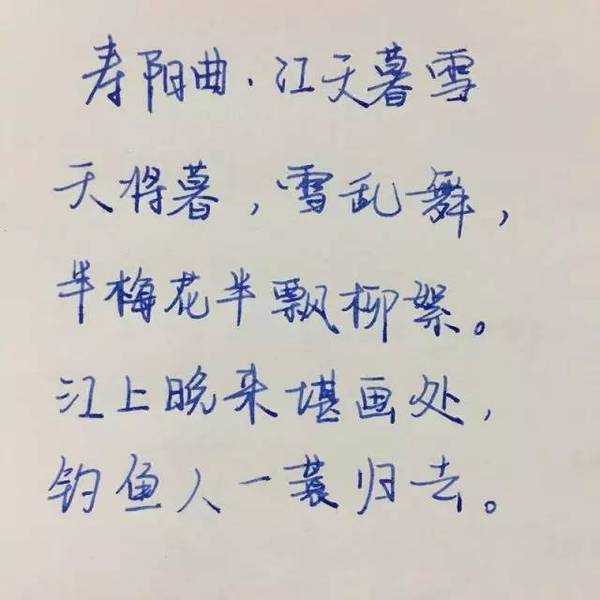 寿阳曲·江天暮雪
天将暮，雪乱舞，
半梅花半飘柳絮。
江上晚来堪画处，
钓鱼人一蓑归去。